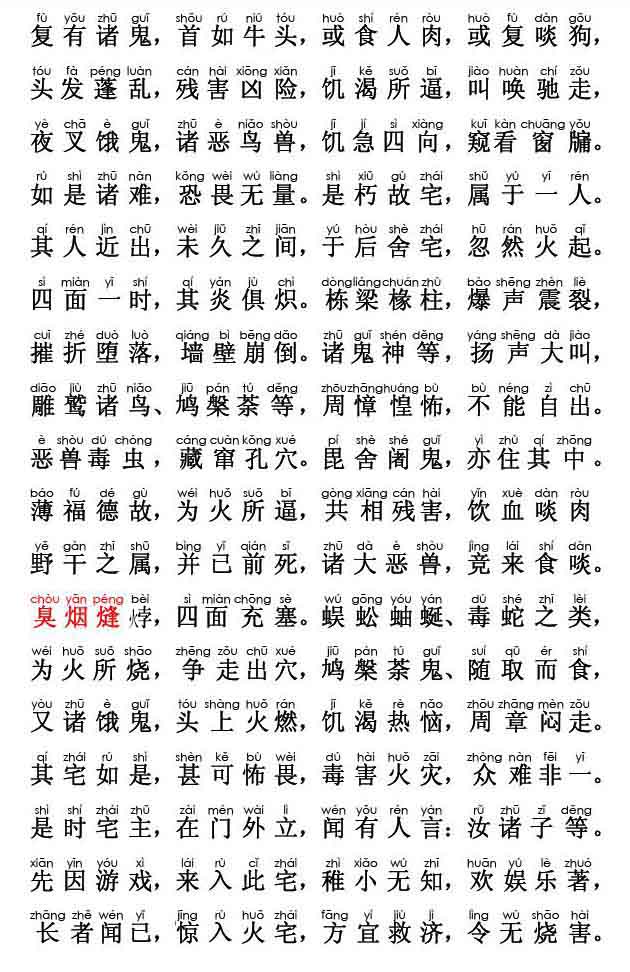 fù yōu zhū guǐ shōu rú niú tóu huò shí rén ròu huò fù dàn gōu
复有诸鬼，首如牛头，或食人肉，或复啖狗，
tóu fà péng luàn cán hài xiōng xiǎn jī kě suǒ bī jiào huàn chí zǒu
头发蓬乱，残害凶险，饥渴所逼，叫唤驰走，
yè chā è guǐ zhū è niǎo shòu jī jí sì xiàng kuī kàn chuāng yǒu
夜叉饿鬼，诸恶鸟兽，饥急四向，窥看窗牖。
rú shì zhū nàn kǒng wèi wú liàng shì xiǔ gù zhái shǔ yú yī rén
如是诸难，恐畏无量。是朽故宅，属于一人。
qí rén jìn chū wèi jiǔ zhī jiān yú hòu shè zhái hū rán huǒ qǐ
其人近出，未久之间，于后舍宅，忽然火起。
sì miàn yī shí qí yán jù chì dòng liáng chuán zhù bào shēng zhèn liè
四面一时，其炎俱炽。栋梁椽柱，爆声震裂，
cuī zhé duò luò qiáng bì bēng dǎo zhū guǐ shén děng yáng shēng dà jiào
摧折堕落，墙壁崩倒。诸鬼神等，扬声大叫，
diāo jiù zhū niǎo jiū pán tú děng zhōu zhāng huáng bù bù néng zì chū
雕鹫诸鸟、鸠槃荼等，周慞惶怖，不能自出。
è shòu dú chóng cáng cuàn kǒng xué pí shè shé guǐ yì zhù qí zhōng
恶兽毒虫，藏窜孔穴。毘舍阇鬼，亦住其中。
báo fú dé gù wéi huǒ suǒ bī gòng xiāng cán hài yǐn xuè dàn ròu
薄福德故，为火所逼，共相残害，饮血啖肉
yě gàn zhī shǔ bìng yǐ qián sǐ zhū dà è shòu jìng lái shí dàn
野干之属，并已前死，诸大恶兽，竞来食啖。
chòu yān péng bèi sì miàn chōng sè wú gōng yóu yán dú shé zhī lèi
臭烟熢㶿，四面充塞。蜈蚣蚰蜒、毒蛇之类，
wéi huǒ suǒ shāo zhēng zǒu chū xué jiū pán tú guǐ suí qǔ ér shí
为火所烧，争走出穴，鸠槃荼鬼、随取而食，
yòu zhū è guǐ tóu shàng huǒ rán jī kě rè nǎo zhōu zhāng mèn zǒu
又诸饿鬼，头上火燃，饥渴热恼，周章闷走。
qí zhái rú shì shèn kě bù wèi dú hài huǒ zāi zhòng nàn fēi yī
其宅如是，甚可怖畏，毒害火灾，众难非一。
shì shí zhái zhǔ zài mén wài lì wén yǒu rén yán rǔ zhū zǐ děng
是时宅主，在门外立，闻有人言：汝诸子等。
xiān yīn yóu xì lái rù cǐ zhái zhì xiǎo wú zhī huān yú lè zhuó
先因游戏，来入此宅，稚小无知，欢娱乐著，
zhǎng zhě wén yǐ jīng rù huǒ zhái fāng yí jiù jì lìng wú shāo hài
长者闻已，惊入火宅，方宜救济，令无烧害。